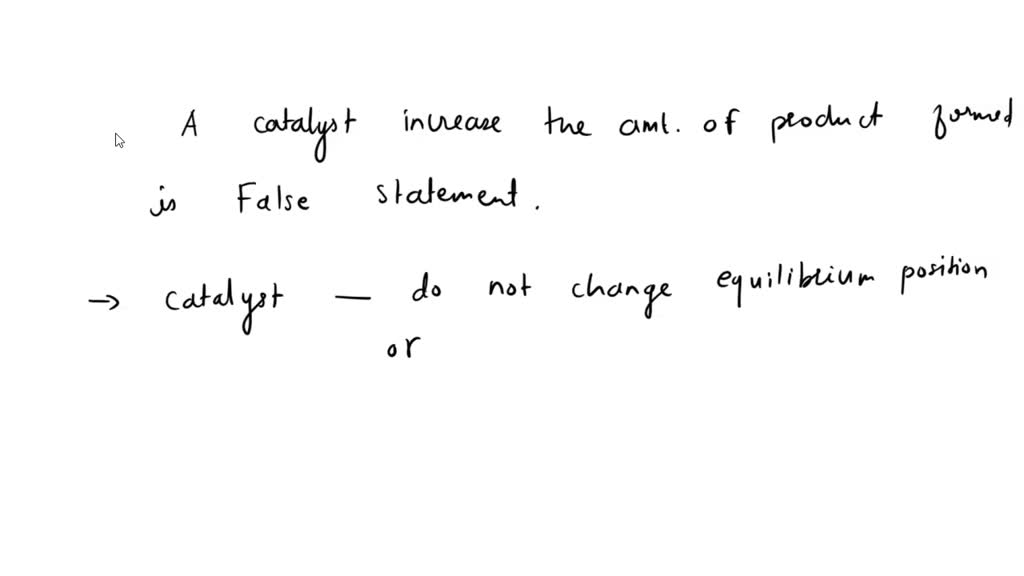 A catalyst increase the amt. of product formed
is False statement.
→ catalyst — do not change equilibrium position
or